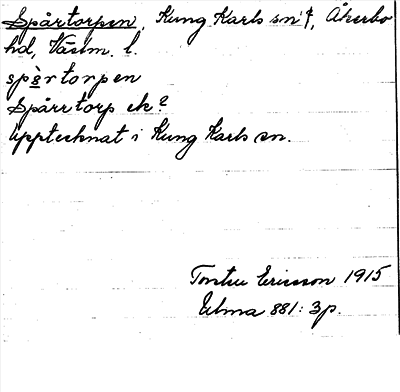 Spårtorpen, Kung Karls sn, Åkerbo
hd, Västm. l.
spàrtorpen
Spårrtorp ek?
Upptecknat i Kung Karls sn.
Torsten Ericsson 1915
Ulma 881: 3 p.